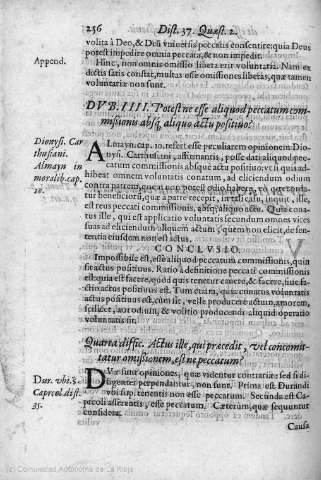 256 Dist. 37. Quæst. 2.
volita à Deo, & Deū vniuersis peccatis consentire: quia Deus
potest impedire omnia peccata, & non impedit.
Append.
Hinc, non omnis omissio libera erit voluntaria. Nam ex
dictis satis constat, multas esse omissiones liberas, quæ tamen
voluntariæ non sunt.
DVB. IIII. Potest ne esse aliquod peccatum com-
missionis absq; aliquo actu positiuo?
Dionysi. Car
thusiani.
Almayn in
moralib. cap.
ALmayn. cap. 10. refert esse peculiarem opinionem Dio-
nysi. Carthusiani, affirmantis, posse dari aliquod pec-
catum commissionis absque actu positiuo: vt si quis ad-
hibeat omnem voluntatis conatum, ad eliciendum odium
contra patrem,
beneficiorū, quæ a patre recepit, in tali casu, inquit, ille,
est reus peccati commissionis, absq; aliquo actu. Quia cona-
tus ille, qui est applicatio voluntatis secundum omnes vires
suas ad eliciendum aliquem actum, quem non elicit, de sen-
tentia eiusdem non est actus.
CONCLVSIO.
Impossibile est, esse aliquod peccatum commissionis, quin
sit actus positiuus. Ratio à definitione peccati commissionis
est: quia est facere, quod quis tenetur cauere, & facere, siue fa-
ctio actus positiuus est. Tum etiam, quia conatus voluntatis
actus positiuus est, cum sit, velle producere actum, amorem,
scilicet, aut odium, & volitio producendi aliquid operatio
voluntatis sit.
Quarta diffic. Actus ille, qui præcedit, vel concomit-
tatur omissionem, est ne peccatum?
Dur. vbi. s.
Capreol. dist.
35.
DVæ sunt opiniones, quæ videntur contrariæ: sed si di-
ligenter perpendantur, non sunt. Prima est Durandi
vbi sup. tenentis non esse peccatum. Secunda est Ca-
preoli asserentis, esse peccatum. Cæterùm, quæ sequuntur
considera.
Causa
(c) Comunidad Autónoma de La Rioja